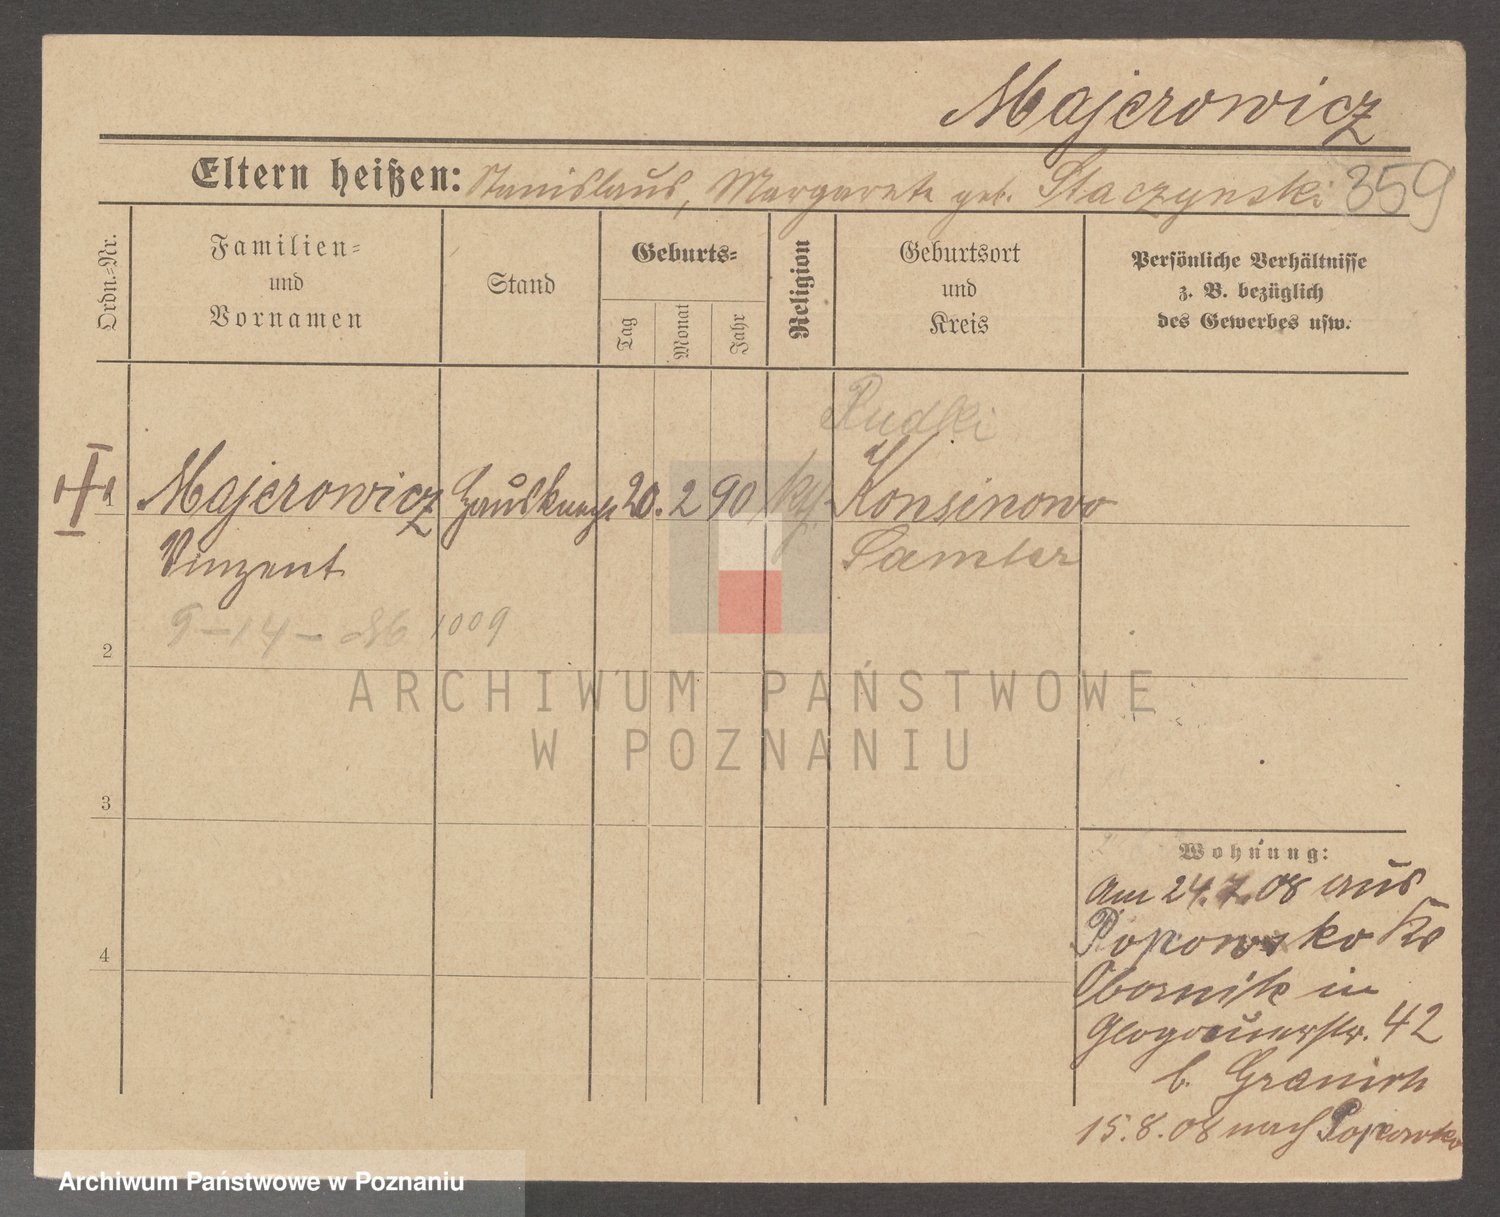 Majerowicz
Eltern heißen: Stanislaus, Margarete geb. Staczynski 359
Ordn.-Nr.
Familien-
und
Vornamen
Stand
Geburts-
Tag
Monat
Jahr
Religion
Geburtsort
und
Kreis
Persönliche Verhältnisse
z. B. bezüglich
des Gewerbes usw.
Rudki
1 Majerowicz Hausknecht 20. 2 90 Konsinowo
Vinzent Samter
9-14- 1009
2
3
4
Wohnung:
Am 24.7.08 aus
Popowko Kr
Obornik in
Glogauerstr. 42
b.
15.8.08 nach Popowko
ARCHIWUM PAŃSTWOWE
W POZNANIU
Archiwum Państwowe w Poznaniu